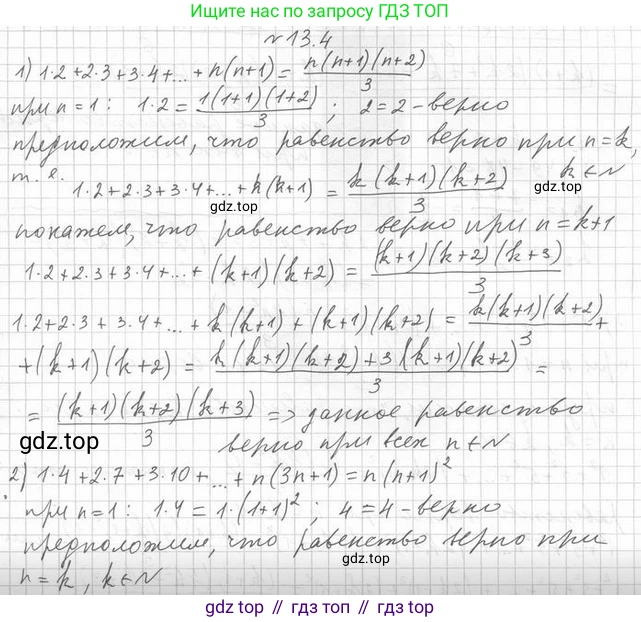 Ищите нас по запросу ГДЗ ТОП
№13.4
1) 1·2+2·3+3·4+...+n(n+1)= n(n+1)(n+2)/3
при n=1: 1·2= 1(1+1)(1+2)/3; 2=2-верно
предположим, что равенство верно при n=k,
т.е. 1·2+2·3+3·4+...+k(k+1) = k(k+1)(k+2)/3 k∈N
gdz.top gdz.top
покажем, что равенство верно при n=k+1
1·2+2·3+3·4+...+(k+1)(k+2) = (k+1)(k+2)(k+3)/3
1·2+2·3+3·4+...+k(k+1)+(k+1)(k+2) = k(k+1)(k+2)/3 +
+(k+1)(k+2) = k(k+1)(k+2)+3(k+1)(k+2)/3 =
= (k+1)(k+2)(k+3)/3 => данное равенство
gdz.top верно при всех n∈N
2) 1·4+2·7+3·10+...+n(3n+1)=n(n+1)²
при n=1: 1·4=1·(1+1)²; 4=4-верно
предположим, что равенство верно при
gdz.top
n=k, k∈N
gdz top // гдз топ // gdz.top // гдз.топ